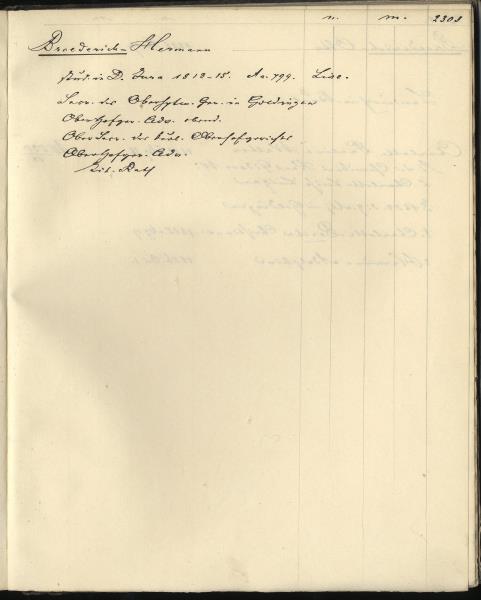 n. m. 2303
Broederich-Hermann
stud. in D. Jura 1812-15. A.a. 799.
Secr. des Oberhptm. Ger. in Goldingen
Oberhofger. Adv. ebend.
Ober Secr. des Oberhofgerichts
Oberhofger. Adv.
Tit. Rath